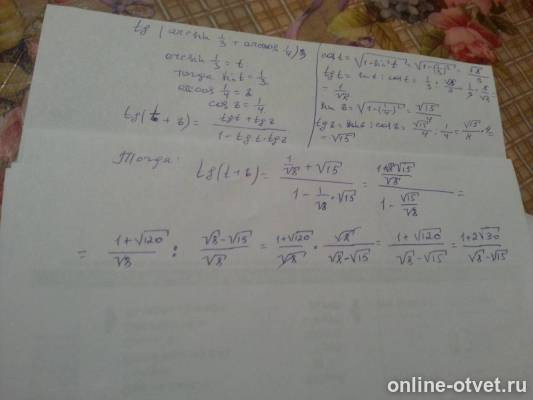 tg (arcsin 1/3 + arccos 1/4)
arcsin 1/3 = t
тогда sin t = 1/3
arccos 1/4 = z
cos z = 1/4
tg(t + z) = (tg t + tg z)/(1 - tg t · tg z)
cos t = √(1 - sin² t) = √(1 - (1/3)²) = √8/3
tg t = sin t : cos t = 1/3 : √8/3 = 1/3 · 3/√8 =
= 1/√8
sin z = √(1 - (1/4)²) = √15/4
tg z = sin z : cos z = √15/4 : 1/4 = √15/4 · 4 =
= √15
Тогда: tg(t + z) = (1/√8 + √15)/(1 - 1/√8 · √15) = ((1+√8√15)/√8)/(1 - √15/√8) =
= (1+√120)/√8 : (√8-√15)/√8 = (1+√120)/√8 · √8/(√8-√15) = (1+√120)/(√8-√15) = (1+2√30)/(√8-√15)
online-otvet.ru